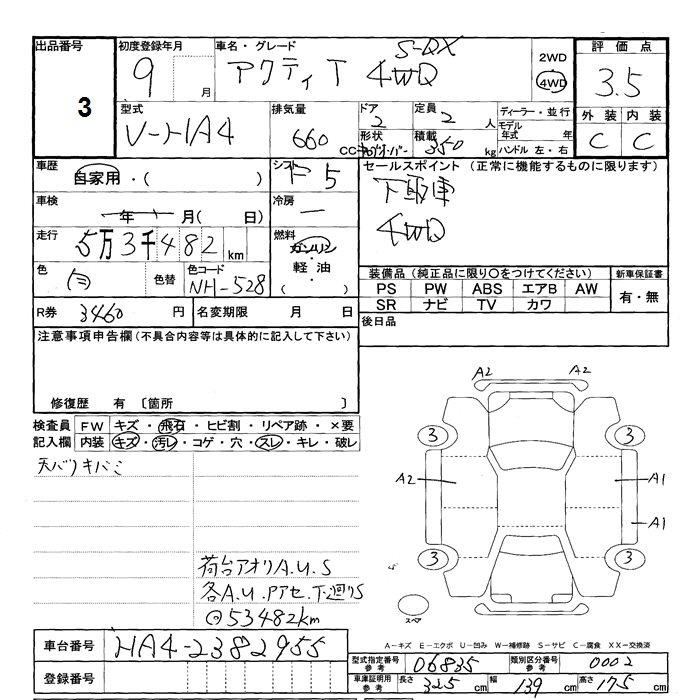 出品番号 3
初度登録年月 9 月
車名・グレード アクティT S-DX 4WD
2WD
4WD
評価点 3.5
外装 内装
C C
型式 V-HA4
排気量 660 CC
ドア 2
形状
定員 2 人
積載 350 kg
ディーラー・並行
モデル年式 年
ハンドル 左・右
車歴 自家用・( )
シフト F5
セールスポイント (正常に機能するものに限ります)
下取車
4WD
車検 年 月( 日)
冷房 —
走行 5万3千482 km
燃料 ガソリン・軽油・( )
色 白 色替
色コード NH-528
装備品(純正品に限り○をつけてください)
PS PW ABS エアB AW
SR ナビ TV カワ
新車保証書
有・無
R券 3460 円
名変期限 月 日
後日品
注意事項申告欄(不具合内容等は具体的に記入して下さい)
修復歴 有 〔箇所 〕
検査員記入欄
FW キズ・飛石・ヒビ割・リペア跡・×要
内装 キズ・汚レ・コゲ・穴・スレ・キレ・破レ
天バリキバミ
荷台アオリA.U.S
各A.U.Pアセ.下廻りS
@53482km
A2 A2
3 3
A2 A1
A1
3 3
スペア
A-キズ E-エクボ U-凹み W-補修跡 S-サビ C-腐食 XX-交換済
車台番号 HA4-2382955
登録番号
型式指定番号参考 06835
類別区分番号参考 0002
車庫証明用参考 長さ 325 cm 幅 139 cm 高さ 175 cm